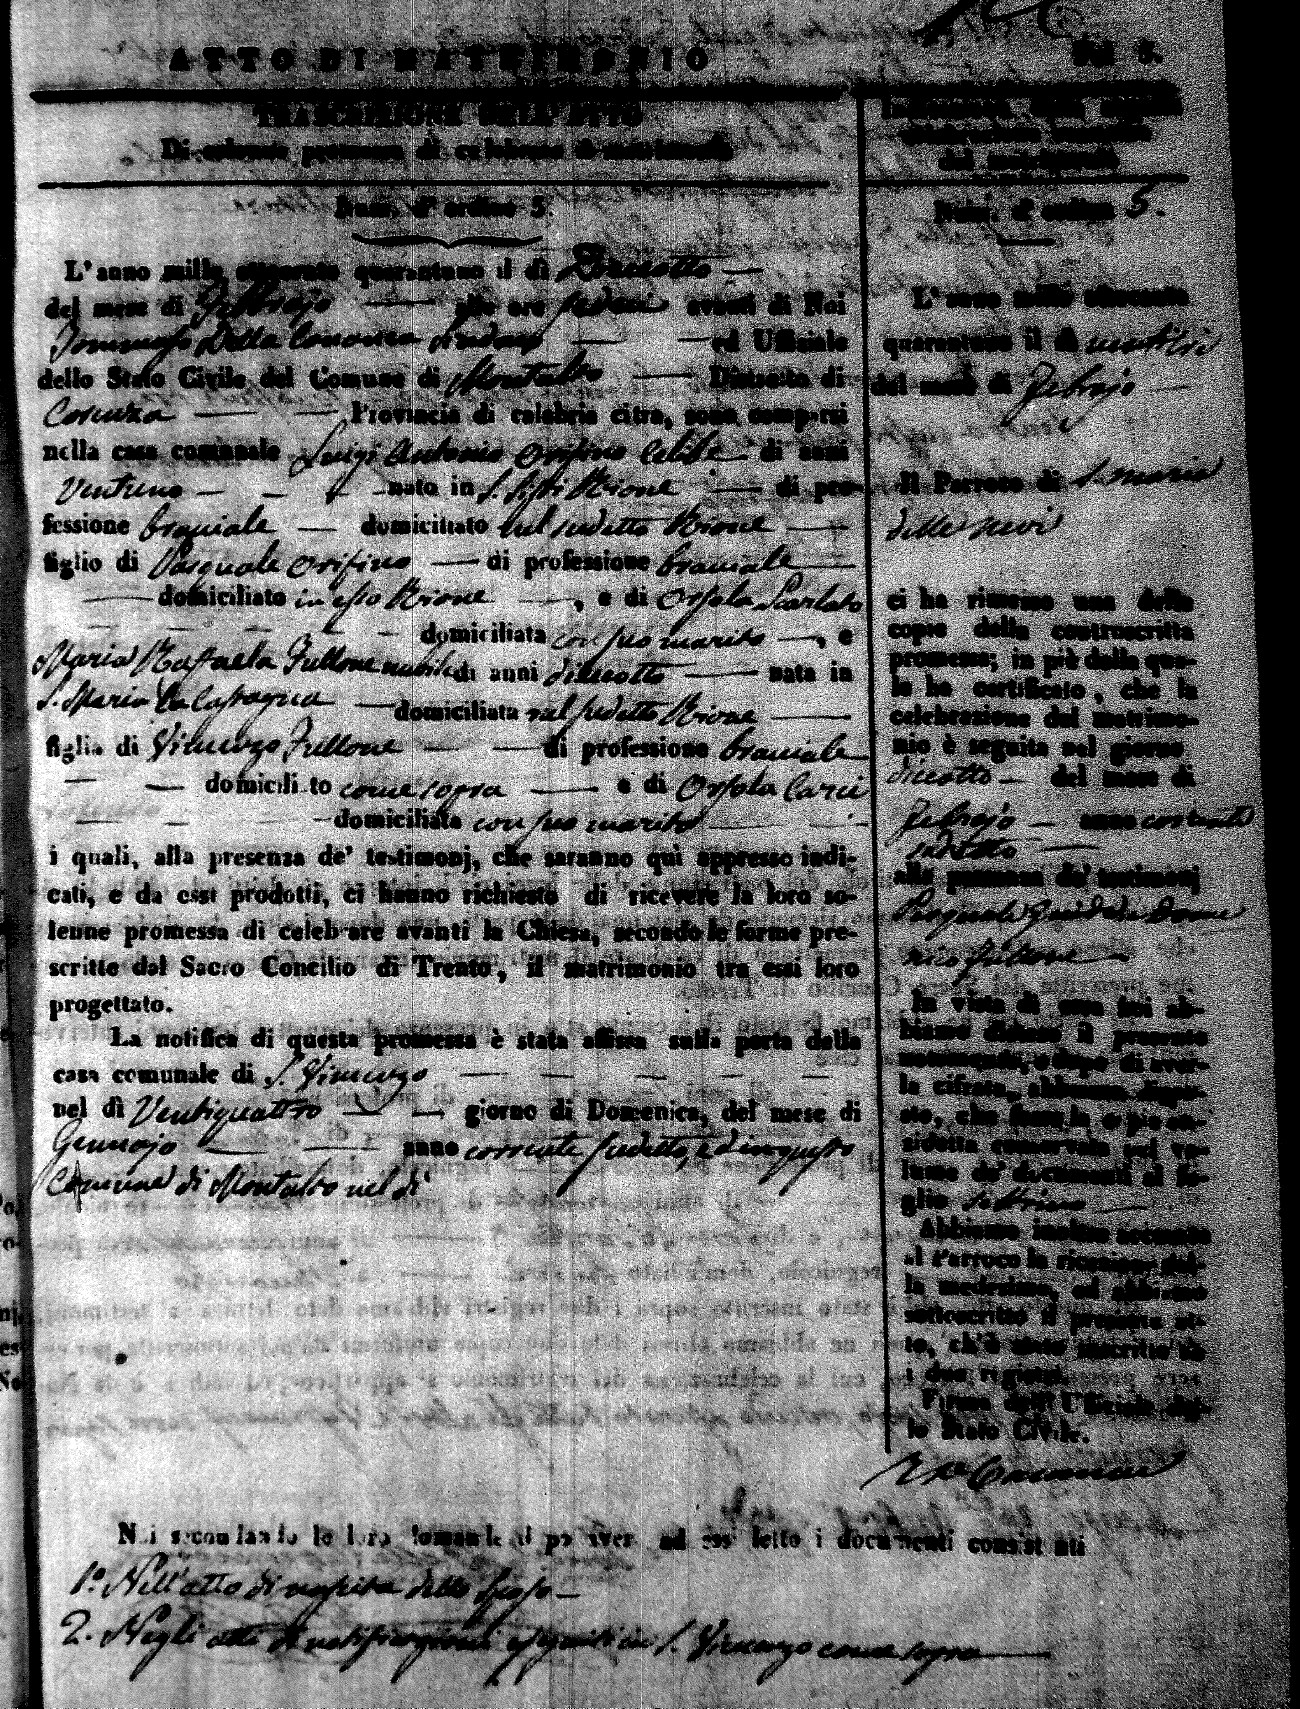 ATTO DI MATRIMONIO
Fol 3.
TRASCRIZIONE DELL'ATTO
Di solenne promessa di celebrare il matrimonio
Num. d'ordine 5.
L'anno mille ottocento quarantuno il dì Dieciotto
del mese di Febrajo alle ore sedeci avanti di Noi
Tommaso Della Sindaco ed Uffiziale
dello Stato Civile del Comune di Montalto Distretto di
Cosenza Provincia di calabria citra, sono comparsi
nella casa comunale Luigi Antonio Orifino Celibe di anni
Ventuno nato in S. Sisti Rione di pro-
fessione braciale domiciliato nel sudetto Rione
figlio di Pasquale Orifino di professione braciale
domiciliato in esso Rione, e di Orsola Scarlato
domiciliata con suo marito, e
Maria Raffaela Fullone nubile di anni dieciotto nata in
S. Maria la Castagna domiciliata nel sudetto Rione
figlia di Vincenzo Fullone di professione braciale
domiciliato come sopra e di Orsola Carci
domiciliata con suo marito
i quali, alla presenza de' testimonj, che saranno quì appresso indi-
cati, e da essi prodotti, ci hanno richiesto di ricevere la loro so-
lenne promessa di celebrare avanti la Chiesa, secondo le forme pre-
scritte dal Sacro Concilio di Trento, il matrimonio tra essi loro
progettato.
La notifica di questa promessa è stata affissa sulla porta della
casa comunale di S. Vincenzo
nel dì Ventiquattro giorno di Domenica, del mese di
Gennajo anno corrente sudetto, ed in questo
Comune di Montalto nel dì
Noi secondando le loro domande dopo aver ad essi letto i documenti consistenti
1.º Nell'atto di nascita dello sposo
2. Negli atti di notificazioni eseguiti in S. Vincenzo come sopra
del matrimonio
Num. d'ordine 5.
L'anno mille ottocento
quarantuno il dì ventitrè
del mese di Febrajo
Il Parroco di S. Maria
delle nevi
ci ha rimesso una delle
copie della controscritta
promessa; in piè della qua-
le ha certificato, che la
celebrazione del matrimo-
nio è seguita nel giorno
dieciotto del mese di
Febrajo anno corrente
sudetto
alla presenza de' testimonj
Pasquale Dome
nico Fullone
In vista di essa noi ab-
biamo disteso il presente
notamento, e dopo di aver-
la cifrata, abbiamo dispo-
sto, che fosse la copia an-
zidetta conservata nel vo-
lume de' documenti al fo-
glio settimo
Abbiamo inoltre accusato
al Parroco la ricezione del-
la medesima, ed abbiamo
sottoscritto il presente at-
to, ch'è stato inscritto su
i due registri.
Firma dell'Uffiziale del-
lo Stato Civile.